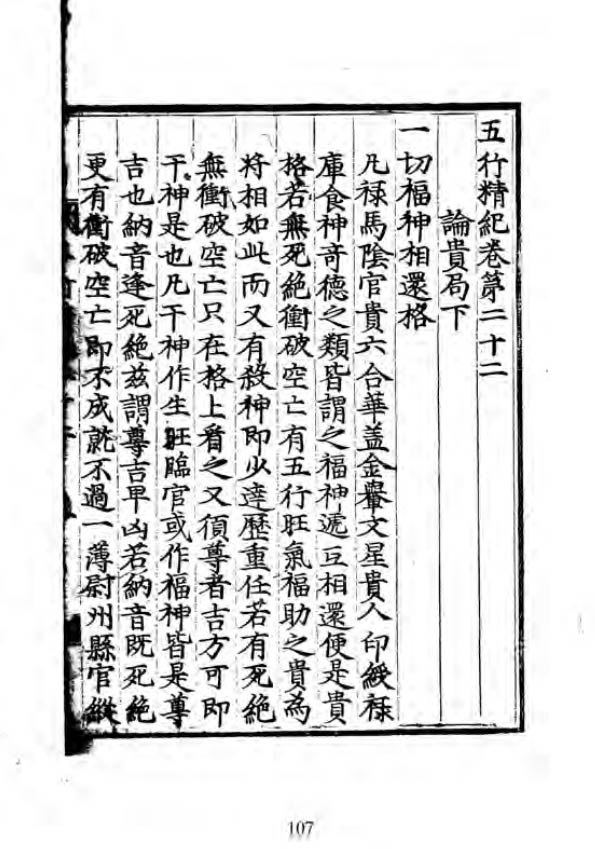 五行精紀卷第二十二
論貴局下
一切福神相還格
凡祿馬陰官貴六合華盖金轝文星貴人印綬祿
庫食神竒德之類皆謂之福神遞互相還便是貴
格若無死絶衝破空亡有五行旺氣福助之貴為
將相如此而又有殺神即少達歷重任若有死絶
無衝破空亡只在格上看之又須尊者吉方可即
干神是也凡干神作生旺臨官或作福神皆是尊
吉也納音逢死絶兹謂尊吉卑凶若納音既死絶
更有衝破空亡即不成就不過一薄尉州縣官縱
107